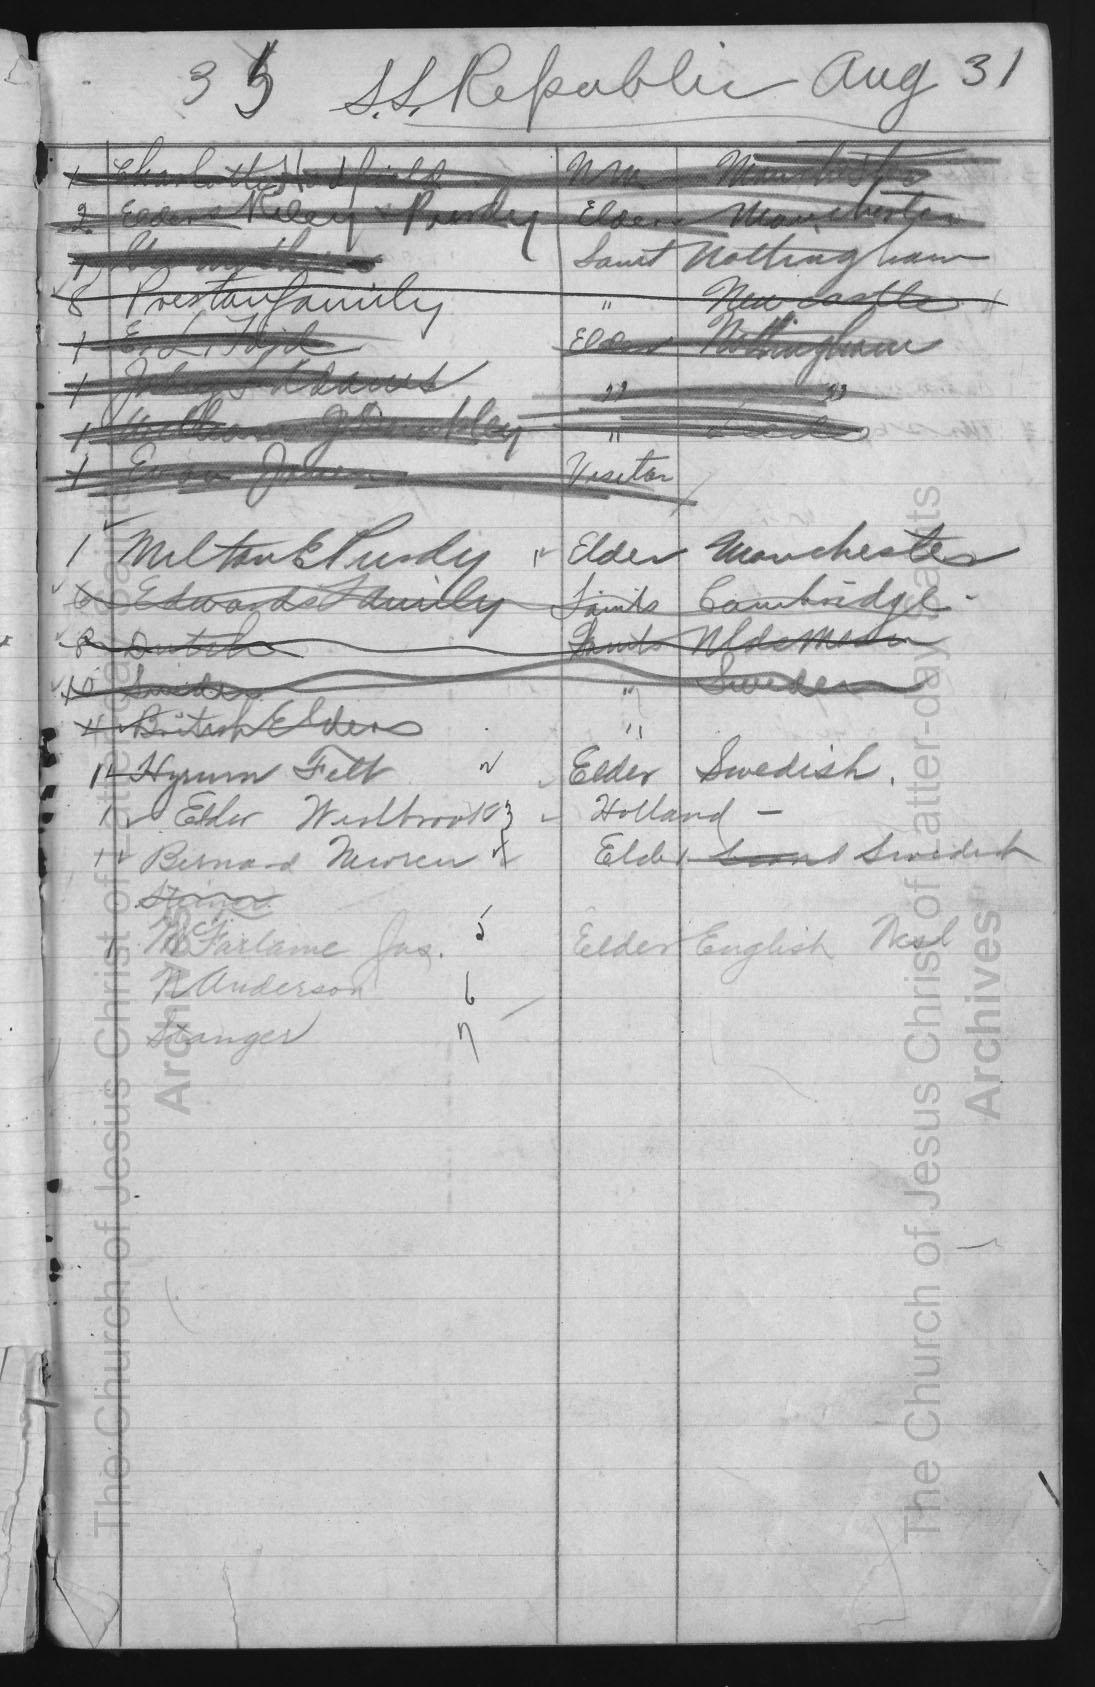 35 S.S. Republic Aug 31
1 Charlotte Hadfield N.M. Manchester
2 Elders Riley & Purdy Elders Manchester
1 Saint Nottingham
8 Preston family " New castle
1 E. L. Elder Nottingham
1 Adams " "
1 William G " Leeds
1 Evan Visitor
1 Milton E Purdy 1 Elder Manchester
6 Edwards Family Saints Cambridge
8 Dutch Saints
10 Sweden " Sweden
4 British Elders "
1 Hyrum Felt 2 Elder Swedish.
1 Elder Westbrook 3 Holland —
1 Bernard 4 Elder Swedish
1 McFarlane Jas. 5 Elder English
N Anderson 6
Stanger 7
The Church of Jesus Christ of Latter-day Saints
Archives
The Church of Jesus Christ of Latter-day Saints
Archives